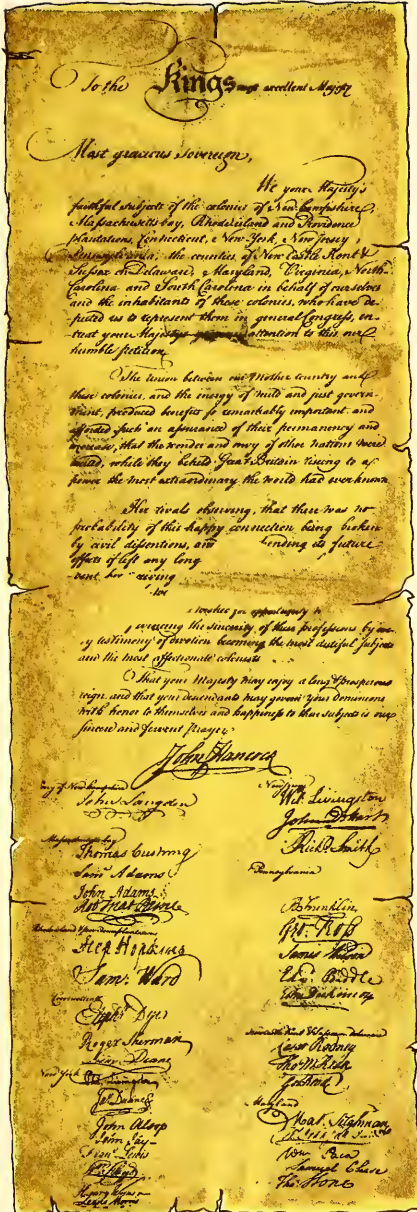 To the Kings most excellent Majesty
Most gracious Sovereign,
We your Majesty's
faithful subjects of the colonies of New-hampshire,
Massachusetts-bay, Rhode island and Providence
plantations, Connecticut, New-York, New-Jersey,
Pennsylvania, the counties of New Castle Kent &
Sussex on Delaware, Maryland, Virginia, North-
Carolina and South Carolina in behalf of ourselves
and the inhabitants of these colonies, who have de-
puted us to represent them in general Congress, en-
treat your Majestys attention to this our
humble petition.
The union between our Mother country and
these colonies, and the energy of mild and just govern-
ment, produced benefits so remarkably important, and
afforded such an assurance of their permanency and
increase, that the wonder and envy of other nations were
excited, while they beheld Great Britain riseing to a
power the most extraordinary the world had ever known
Her rivals observing, that there was no
probability of this happy connection being broken
by civil dissentions, and its future
effects if left any long

wishes for opportunity
the sincerity of these professions by
testimony of devotion becoming the most dutiful subjects
and the most affectionate colonists
That your Majesty may enjoy a long & prosperous
reign, and that your descendants may govern your Dominions
with honor to themselves and happiness to their subjects is our
sincere and fervent prayer.
John Hancock
New hampshire
John Langdon
Massachusetts bay
Thomas Cushing
Sam Adams
John Adams
Rob Treat Paine
Step Hopkins
Sam: Ward
Connecticut
Eliph Dyer
Roger Sherman
Silas Deane
New York
Jas Duane
John Alsop
John Jay
Fran Lewis
Lewis Morris
New Jersey
Wil: Livingston
John
Richd. Smith
Pennsylvania
B Franklin
Geo: Ross
James Wilson
Edw: Biddle
John Dickinson
Caesar Rodney
Tho M:Kean
Geo Read
Maryland
Mat. Tilghman
Wm Paca
Samuel Chase
Tho: Stone